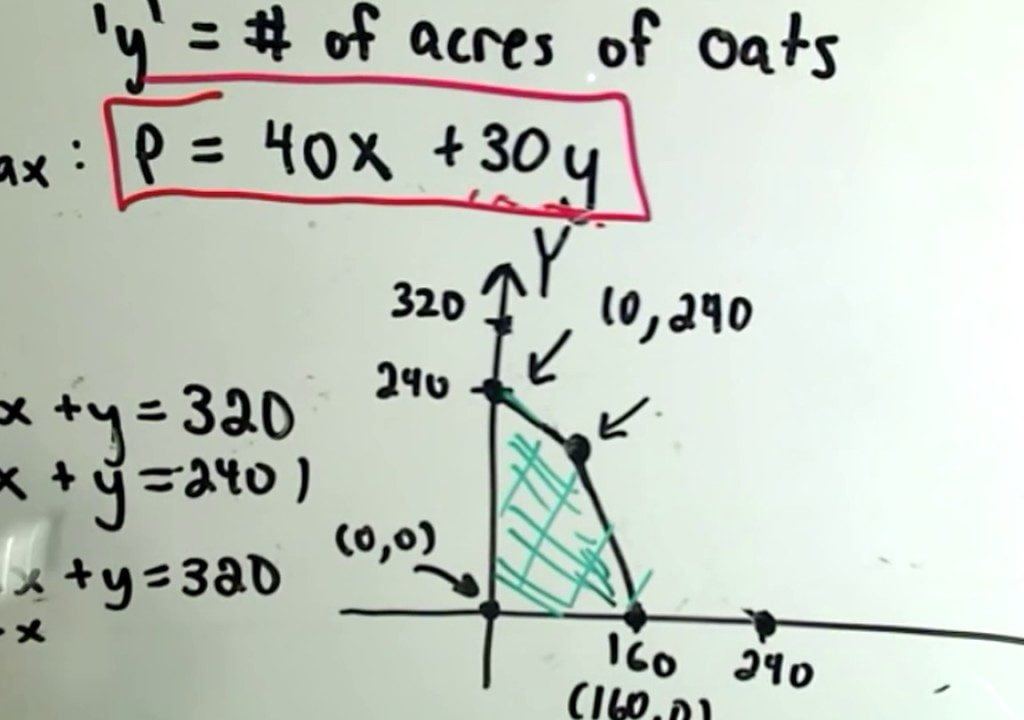 'y' = # of acres of oats
ax : P = 40x + 30y
Y
320
(0, 240
240
x + y = 320
x + y = 240 )
(0,0)
x + y = 320
- x
160
240
(160,0)